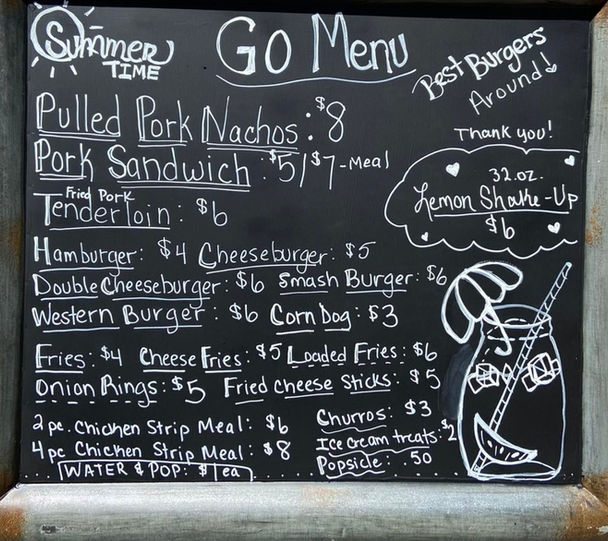 Summer
TIME
Go Menu
Best Burgers
Around!
Thank you!
Pulled Pork Nachos: $8
Pork Sandwich: $5/$7-Meal
Fried Pork
Tenderloin: $6
32.oz.
Lemon Shake-Up
$6
Hamburger: $4 Cheeseburger: $5
Double Cheeseburger: $6 Smash Burger: $6
Western Burger: $6 Corn Dog: $3
Fries: $4 Cheese Fries: $5 Loaded Fries: $6
Onion Rings: $5 Fried cheese Sticks: $5
2pc. Chicken Strip Meal: $6
4pc Chicken Strip Meal: $8
WATER & POP: $1 ea
Churros: $3
Ice Cream treats: $2
Popsicle: .50